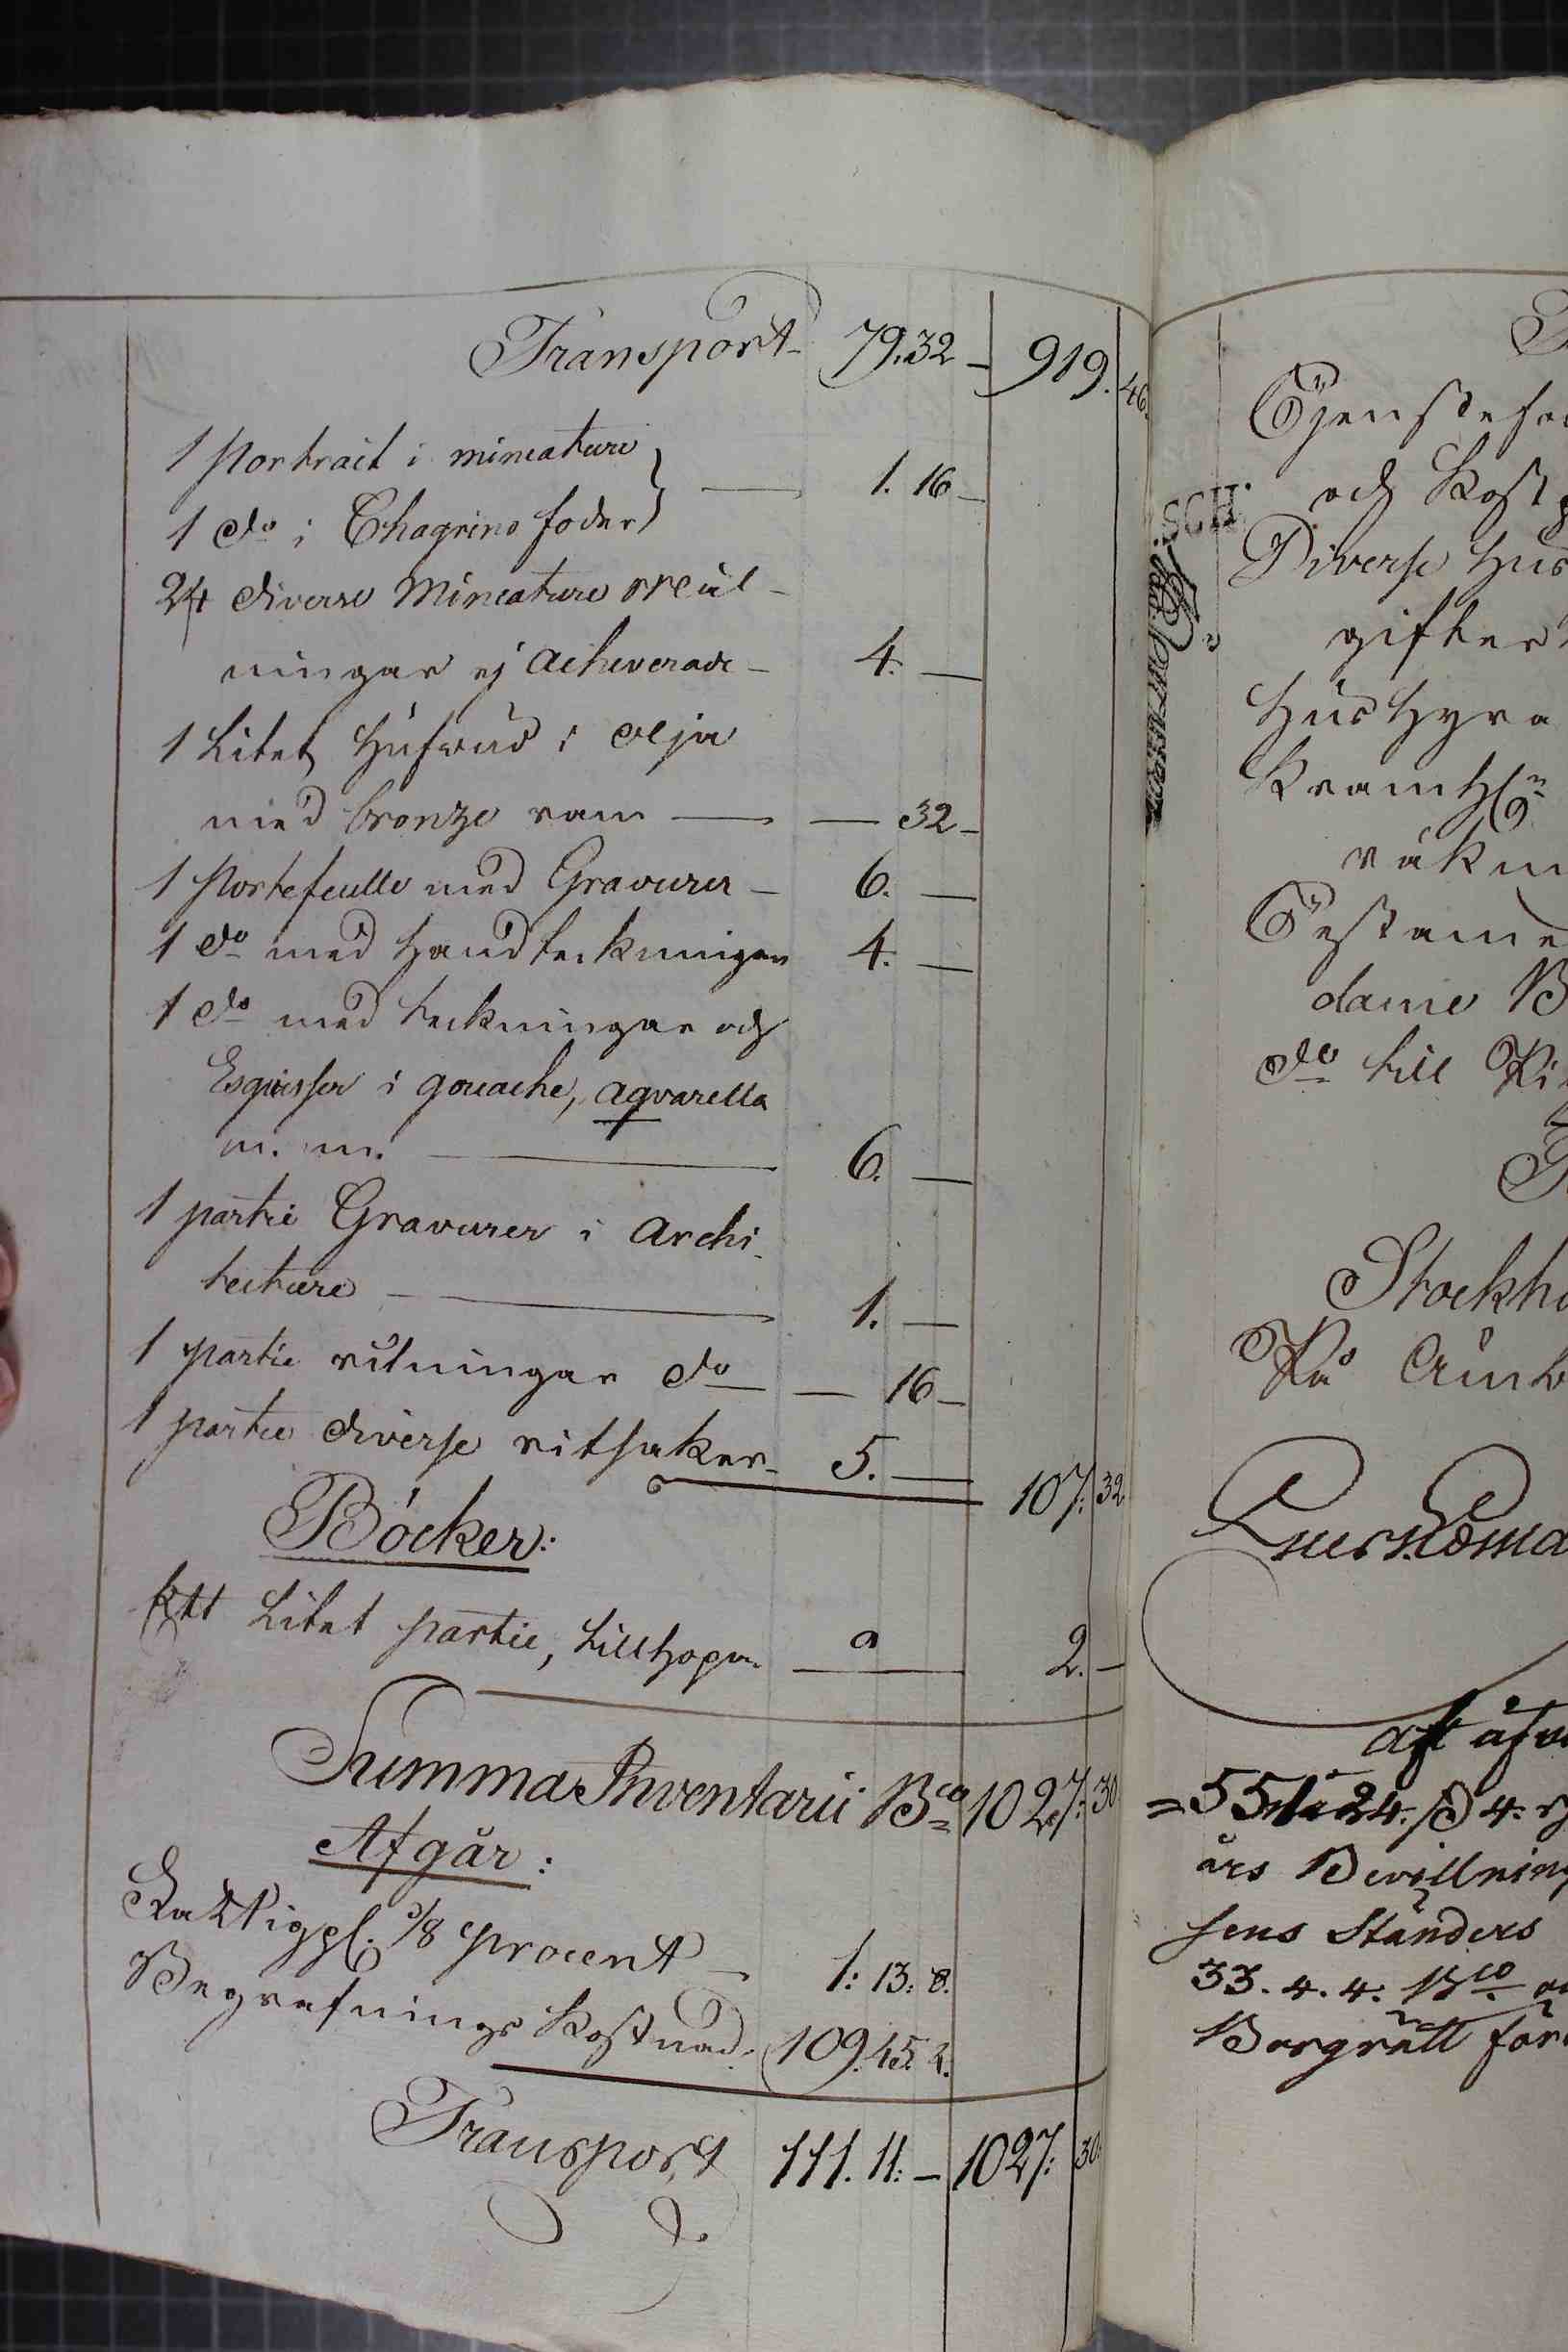 Transport 79.32 – 919. 46.
1 Portrait i mineature
1 do i Chagrins foder — 1. 16 –
24 diverse Mineature mål-
ningar ej acheverade – 4. —
1 Litet Hufvud i olja
med bronze ram — — 32 –
1 Portefeulle med Gravurer – 6. —
1 do med Handteckningar 4. —
1 do med teckningar och
Esquisser i gouache, aqvarella
m. m. — 6. —
1 partie Gravurer i Archi-
tecture — 1. —
1 partie ritningar do — 16 –
1 partie diverse ritsaker – 5. — 107. 32
Böcker:
Ett Litet partie, tillhopa — 2. –
Summa Inventarii Bco 1027: 30.
Afgår:
Fattigpg. 1/8 procent – 1: 13. 8.
Begrafnings Kostnad. 109. 45. 4.
Transport 111. 11: – 1027: 30.
SCH.
Tjenstefo
och Kost
Diverse Hus
gifter
Hus Hyra
Kramh
räkn
Testame
dame B
do till Ri
Stockho
På
af
= 551 24. ß 4. r
års Bevillning
sens Ständers
33. 4. 4. Bco
Borgrätt för